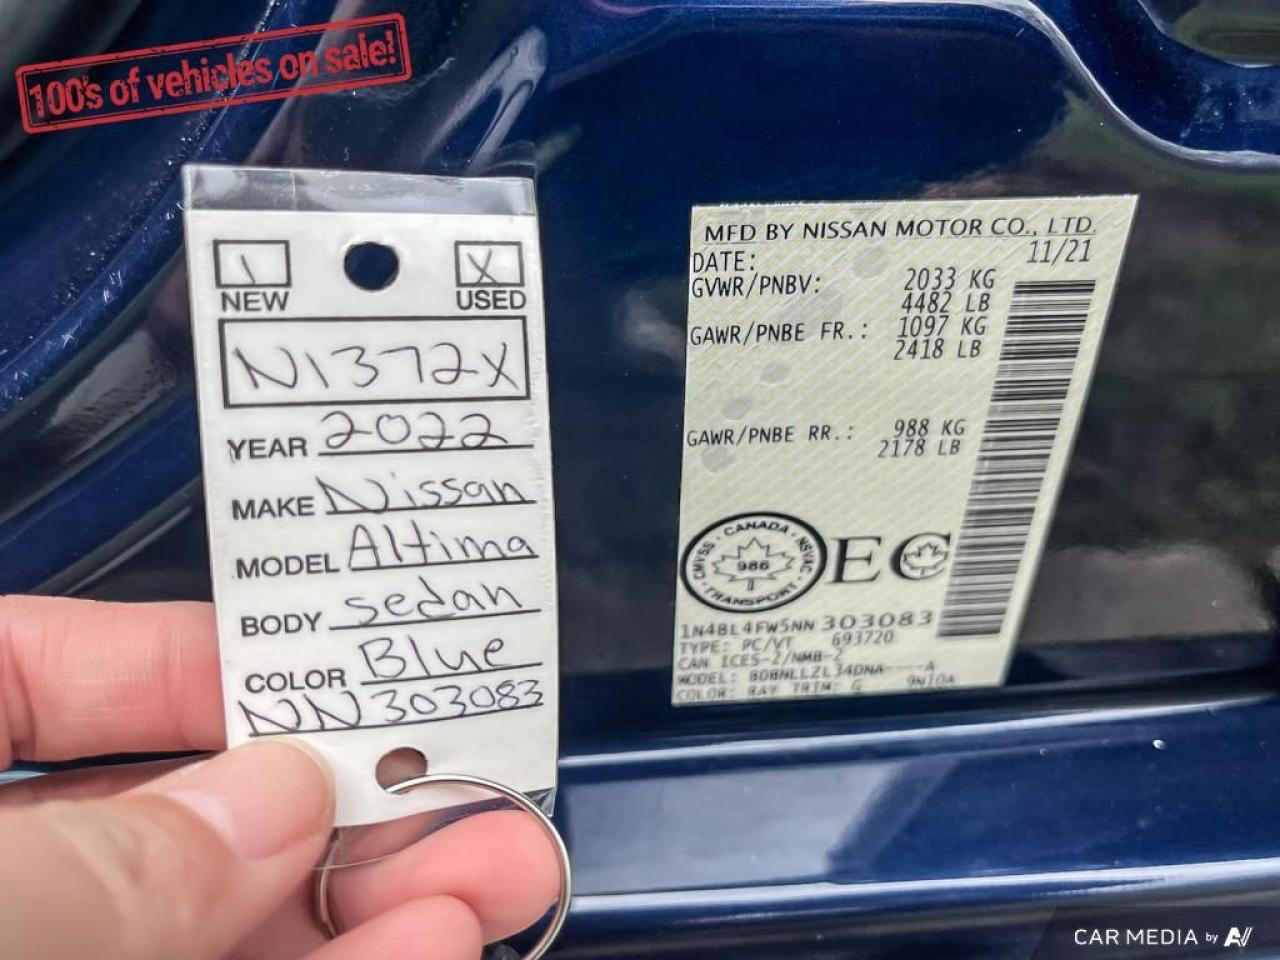 100's of vehicles on sale!
NEW
X
USED
N1372X
YEAR 2022
MAKE Nissan
MODEL Altima
BODY sedan
COLOR Blue
NN303083
MFD BY NISSAN MOTOR CO., LTD.
DATE: 11/21
GVWR/PNBV: 2033 KG
4482 LB
GAWR/PNBE FR.: 1097 KG
2418 LB
GAWR/PNBE RR.: 988 KG
2178 LB
CANADA
CMVSS NSVAC
986
TRANSPORT
EC
1N4BL4FW5NN303083
TYPE: PC/VT 693720
CAN ICES-2/NMB-2
MODEL: A
COLOR: RAY TRIM: G
CAR MEDIA by